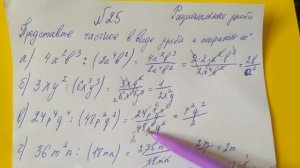 №25 Рациональные дроби
Представьте частное в виде дроби и сократите её:
а) 4a²b³ : (2a⁴b²) = 4a²b³/2a⁴b² = 2b/a²
б) 3xy² : (6x³y³) = 3xy²/6x³y³ = 1/2x²y
в) 24p⁴q⁴ : (48p²q²) = 24p⁴q⁴/48p²q² = p²q²/2
г) 36m²n : (18mn) = 36m²n/18mn = 2m